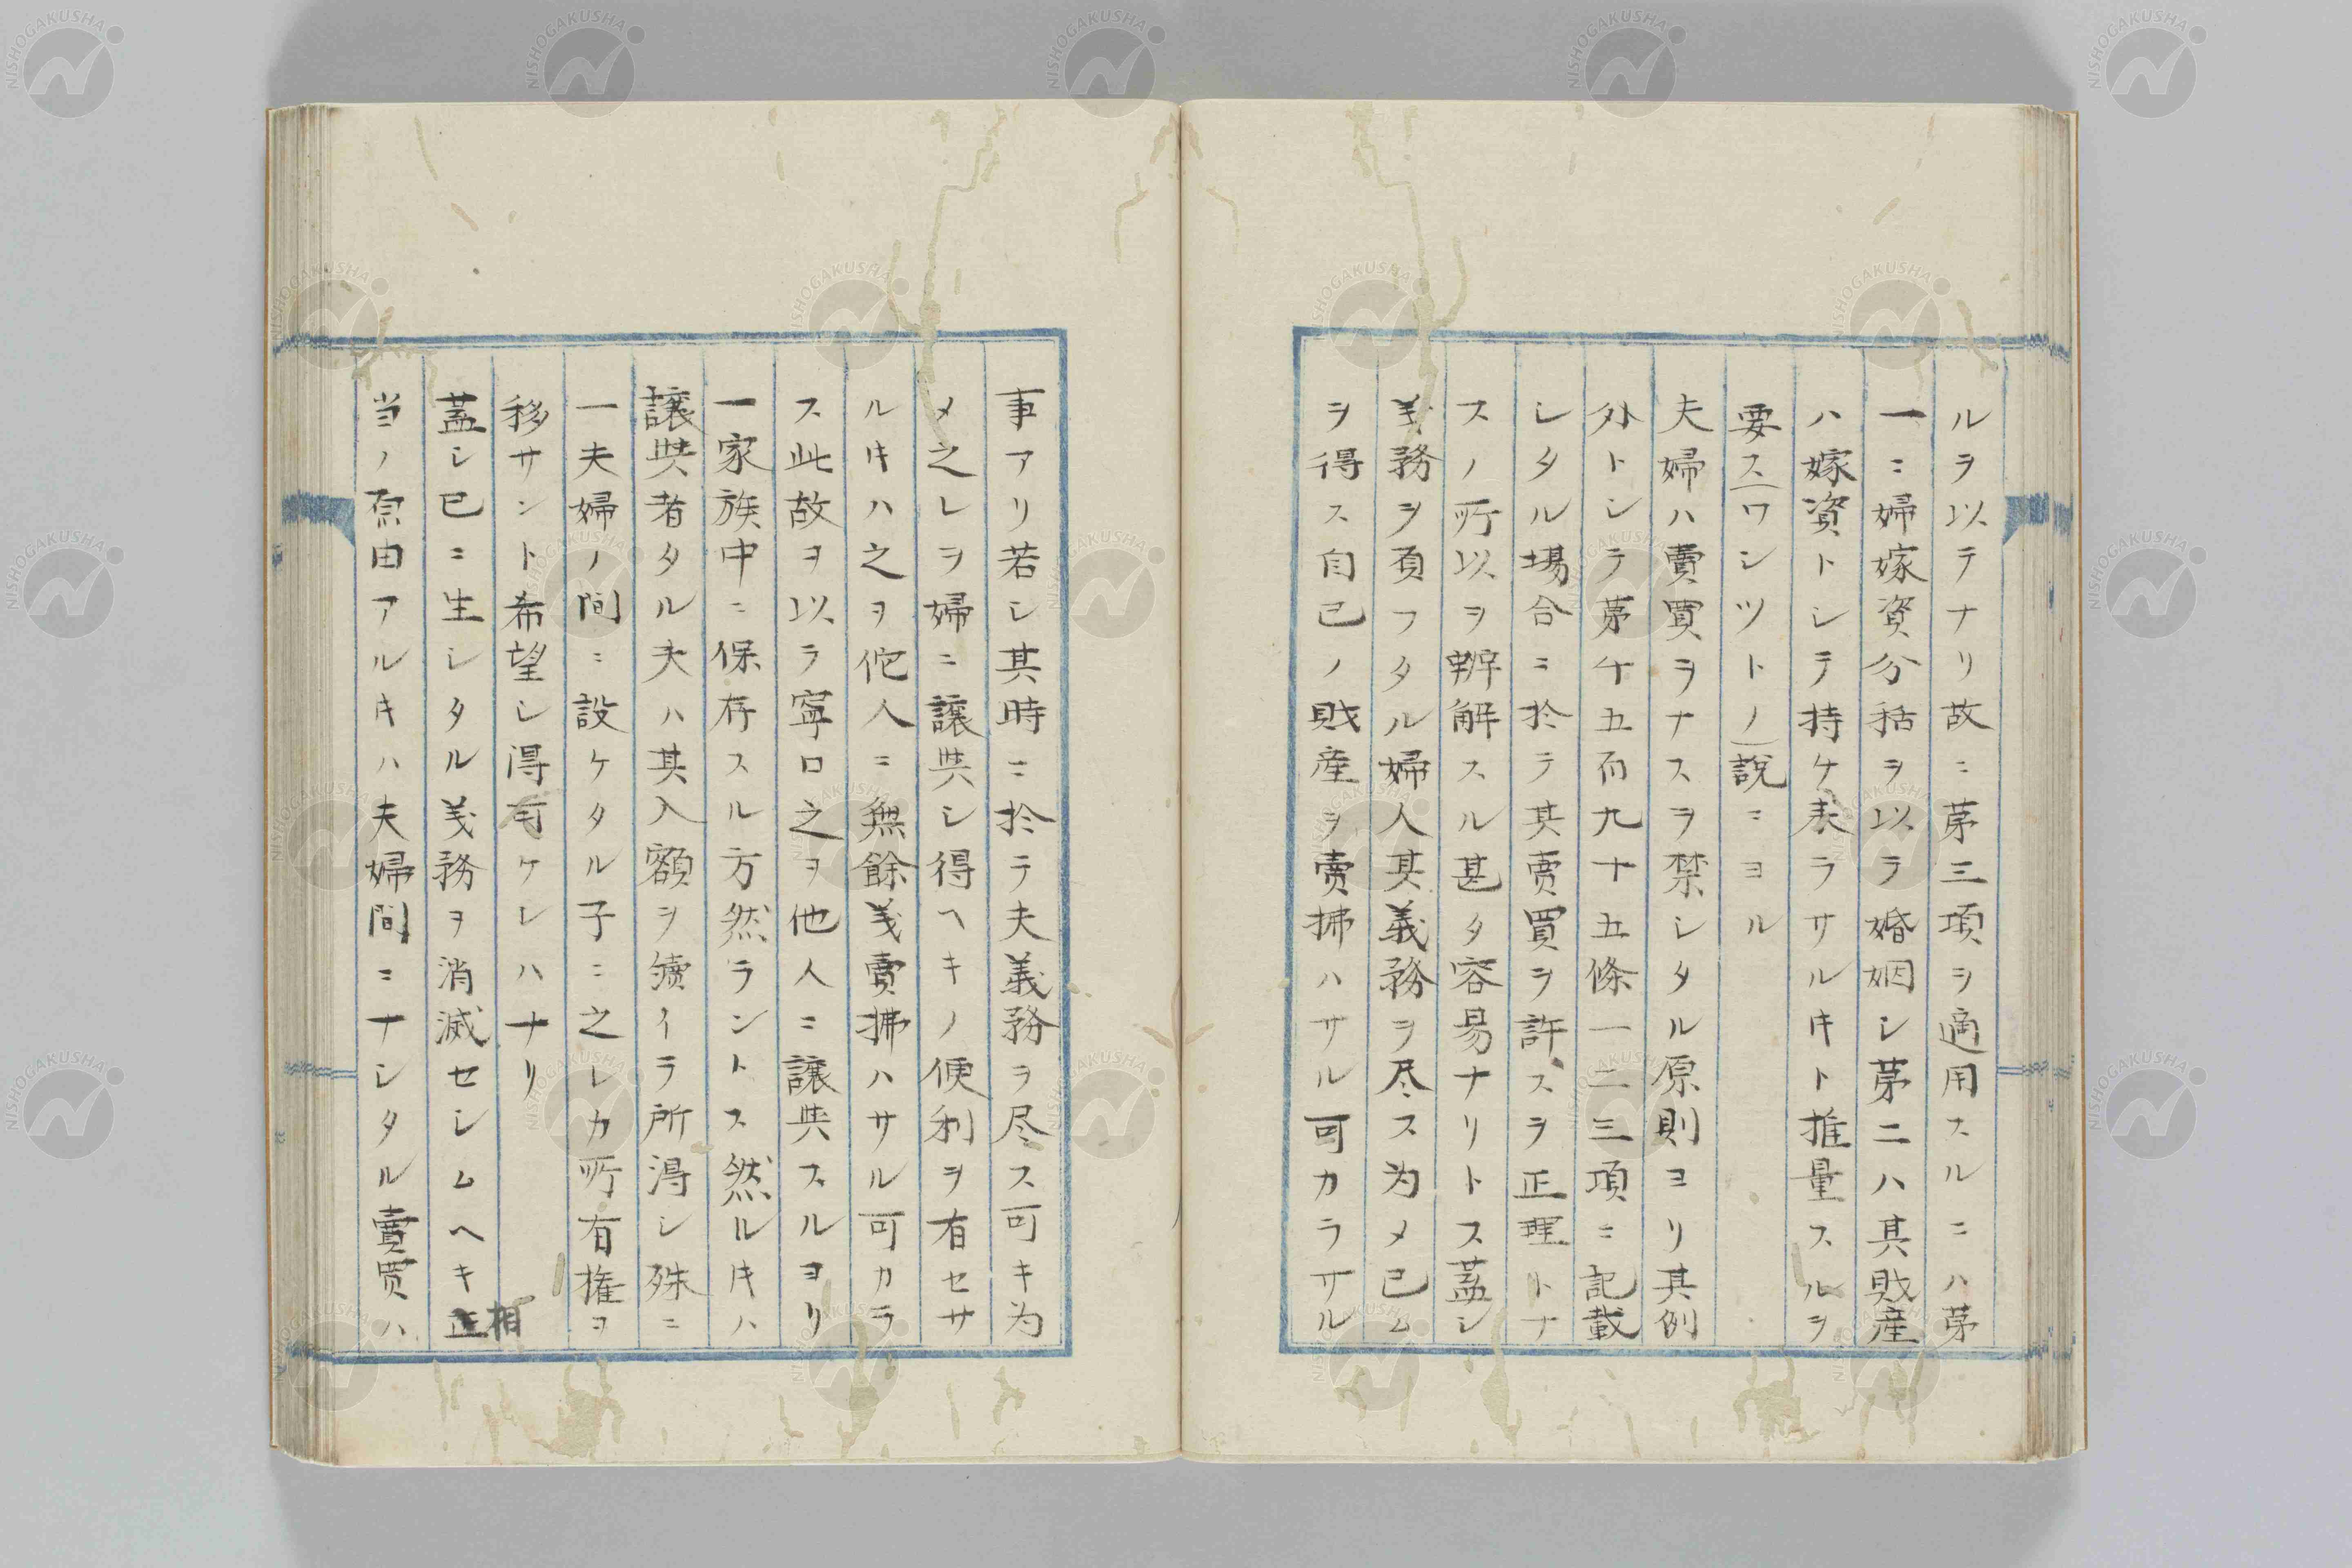 ルヲ以テナリ故ニ苐三項ヲ適用スルニハ苐
一ニ婦嫁資分括ヲ以テ婚姻シ苐二ハ其財産
ハ嫁資トシテ持ケ来ラサルキト推量スルヲ
要ス(ワシツトノ)説ニヨル
夫婦ハ賣買ヲナスヲ禁シタル原則ヨリ其例
外トシテ苐千五百九十五條一二三項ニ記載
シタル場合ニ於テ其賣買ヲ許スヲ正理トナ
スノ所以ヲ辨解スル甚タ容易ナリトス蓋シ
義務ヲ負フタル婦人其義務ヲ尽ス為メ已ム
ヲ得ス自己ノ財産ヲ賣拂ハサル可カラサル
事アリ若シ其時ニ於テ夫義務ヲ尽ス可キ為
メ之レヲ婦ニ讓與シ得ヘキノ便利ヲ有セサ
ルキハ之ヲ佗人ニ無餘義賣拂ハサル可カラ
ス此故ヲ以テ寧ロ之ヲ他人ニ讓與スルヨリ
一家族中ニ保存スル方然ラントス然ルキハ
讓與者タル夫ハ其入額ヲ續イテ所得シ殊ニ
一夫婦ノ間ニ設ケタル子ニ之レカ所有権ヲ
移サント希望シ得可ケレハナリ
蓋シ已ニ生シタル義務ヲ消滅セシムヘキ正相
当ノ原由アルキハ夫婦間ニナシタル賣買ハ
NISHOGAKUSHA